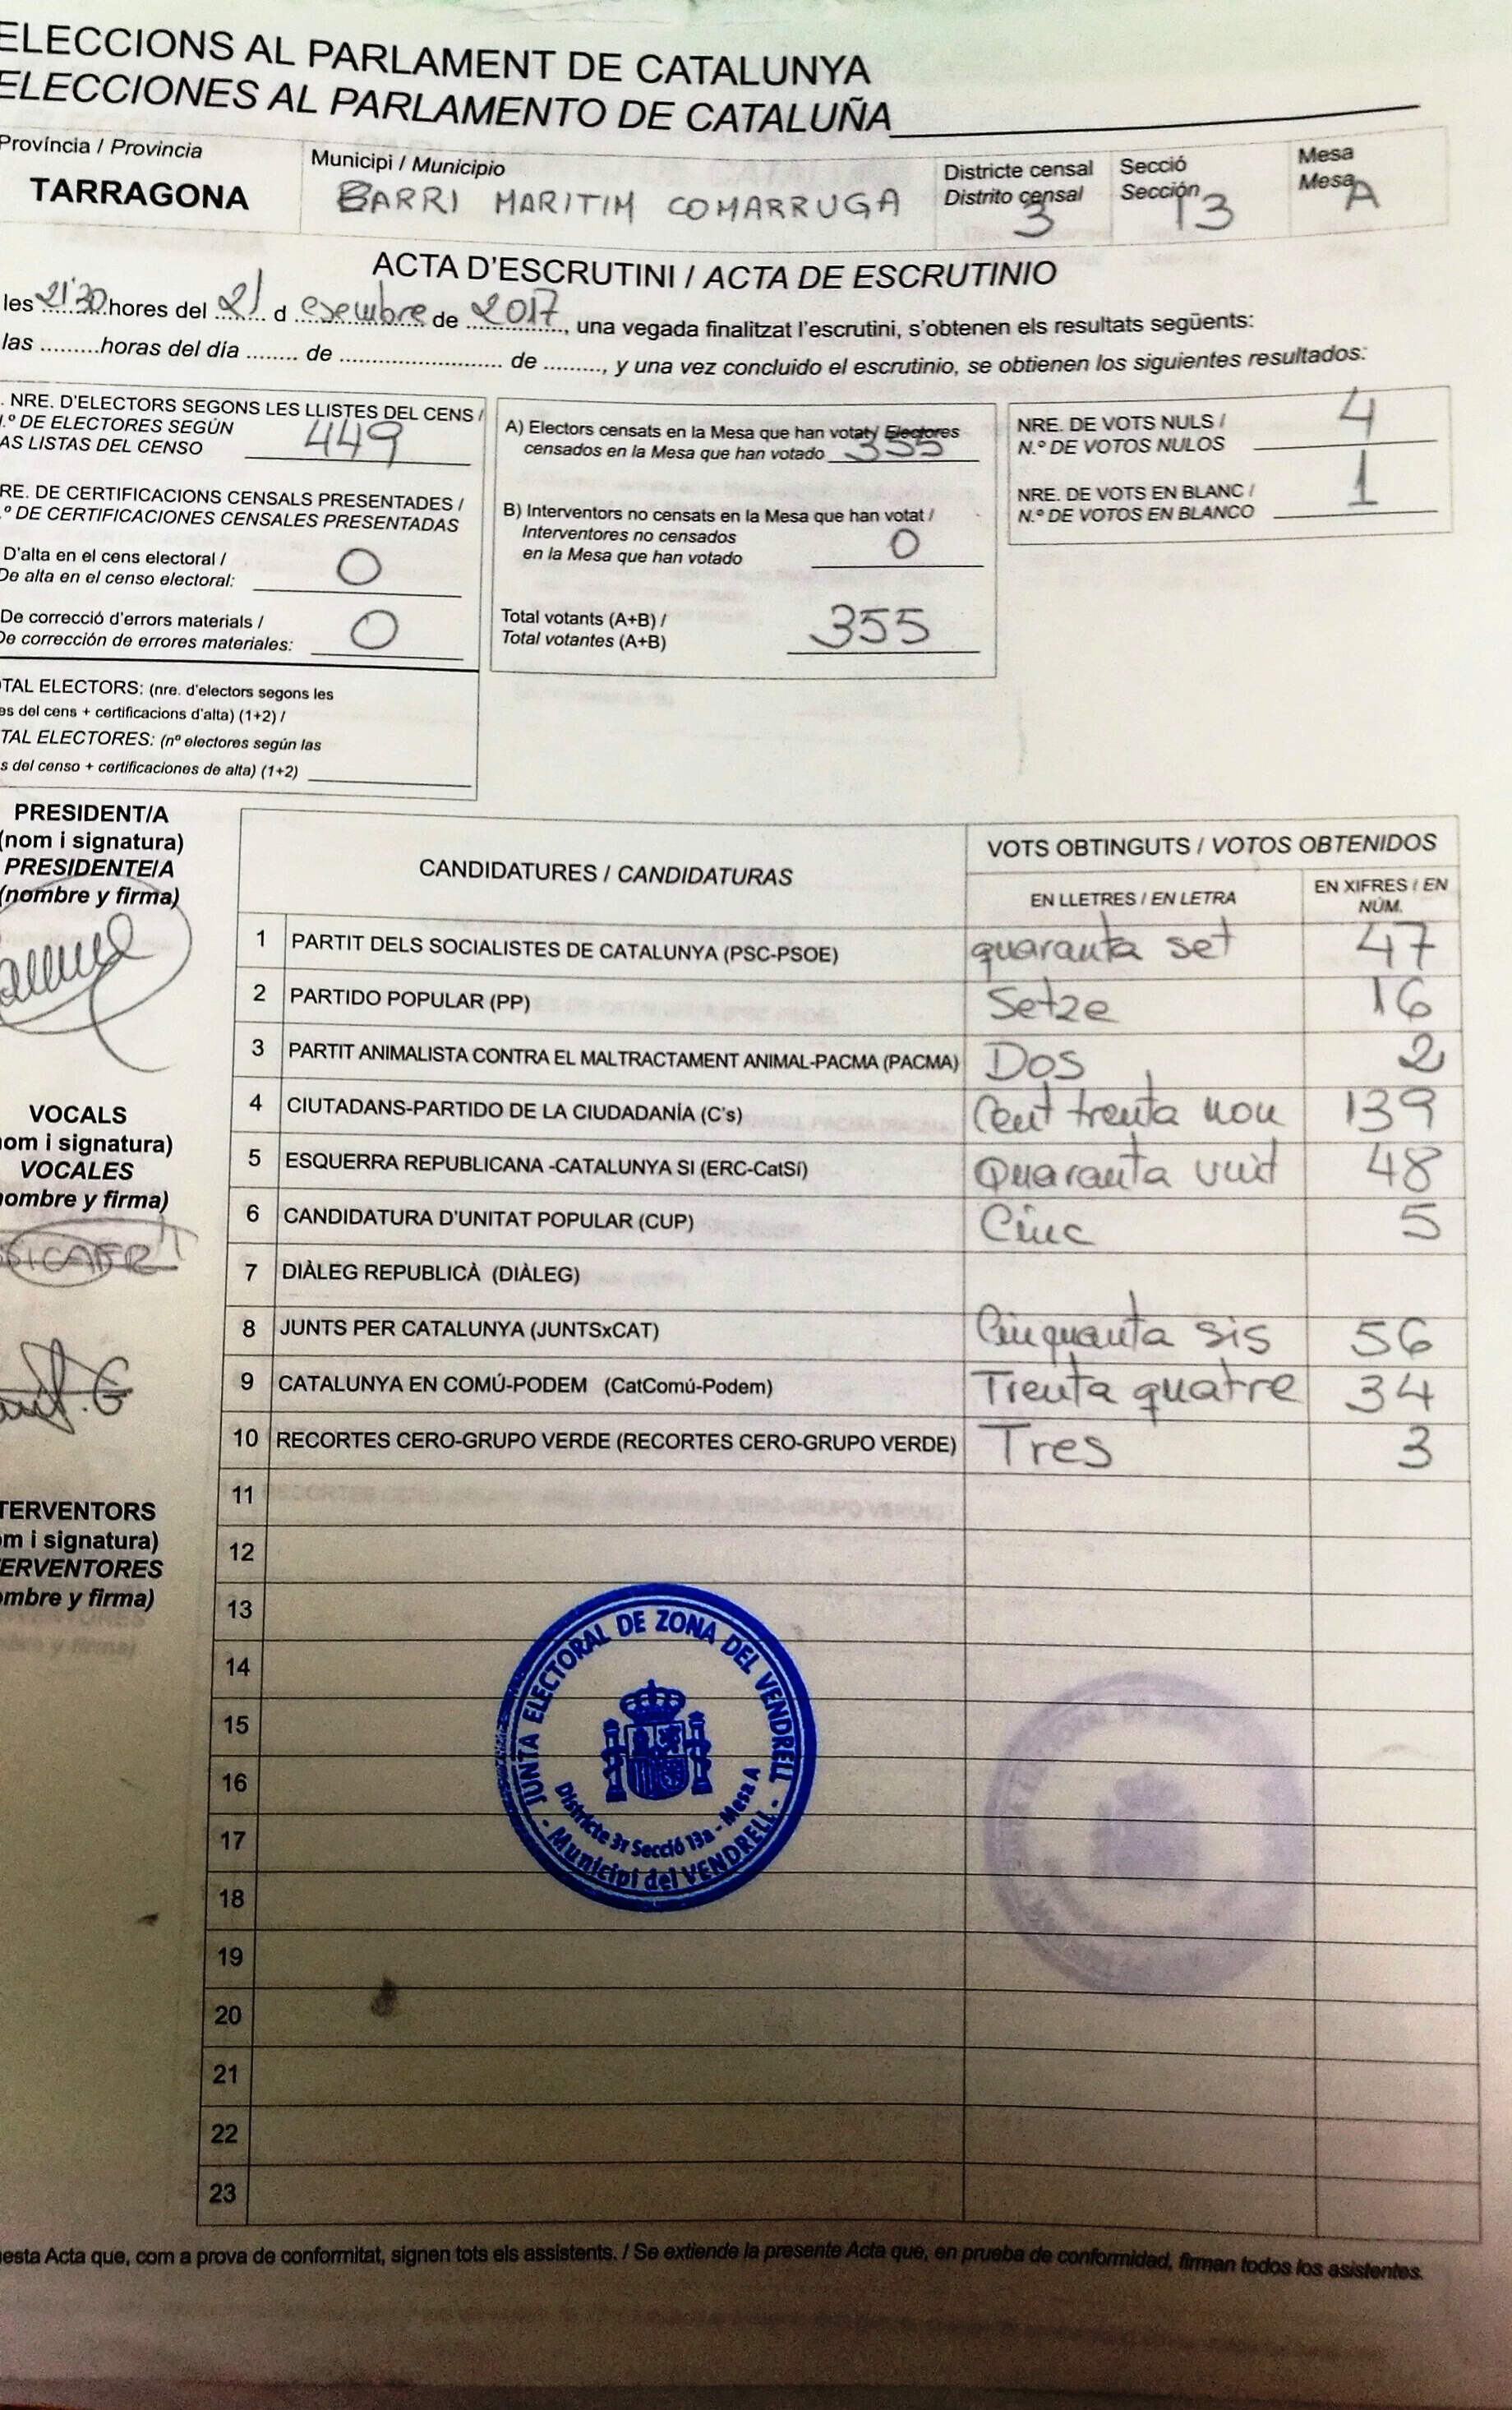 ELECCIONS AL PARLAMENT DE CATALUNYA
ELECCIONES AL PARLAMENTO DE CATALUÑA
Província / Provincia
TARRAGONA
Municipi / Municipio
BARRI MARITIM COMARRUGA
Districte censal
Distrito censal
3
Secció
Sección
13
Mesa
Mesa
A
ACTA D'ESCRUTINI / ACTA DE ESCRUTINIO
les 21'30 hores del 21 d esembre de 2017, una vegada finalitzat l'escrutini, s'obtenen els resultats següents:
las .........horas del día ........ de ............................ de ........., y una vez concluido el escrutinio, se obtienen los siguientes resultados:
. NRE. D'ELECTORS SEGONS LES LLISTES DEL CENS /
.º DE ELECTORES SEGÚN
AS LISTAS DEL CENSO 449
RE. DE CERTIFICACIONS CENSALS PRESENTADES /
.º DE CERTIFICACIONES CENSALES PRESENTADAS
D'alta en el cens electoral /
De alta en el censo electoral: 0
De correcció d'errors materials /
De corrección de errores materiales: 0
OTAL ELECTORS: (nre. d'electors segons les
es del cens + certificacions d'alta) (1+2) /
TAL ELECTORES: (nº electores según las
s del censo + certificaciones de alta) (1+2)
A) Electors censats en la Mesa que han votat / Electores
censados en la Mesa que han votado 355
B) Interventors no censats en la Mesa que han votat /
Interventores no censados
en la Mesa que han votado 0
Total votants (A+B) /
Total votantes (A+B) 355
NRE. DE VOTS NULS /
N.º DE VOTOS NULOS 4
NRE. DE VOTS EN BLANC /
N.º DE VOTOS EN BLANCO 1
PRESIDENT/A
(nom i signatura)
PRESIDENTE/A
(nombre y firma)
VOCALS
nom i signatura)
VOCALES
nombre y firma)
TERVENTORS
om i signatura)
ERVENTORES
ombre y firma)
CANDIDATURES / CANDIDATURAS
VOTS OBTINGUTS / VOTOS OBTENIDOS
EN LLETRES / EN LETRA
EN XIFRES / EN
NÚM.
1 PARTIT DELS SOCIALISTES DE CATALUNYA (PSC-PSOE) quaranta set 47
2 PARTIDO POPULAR (PP) Setze 16
3 PARTIT ANIMALISTA CONTRA EL MALTRACTAMENT ANIMAL-PACMA (PACMA) Dos 2
4 CIUTADANS-PARTIDO DE LA CIUDADANÍA (C's) Cent trenta nou 139
5 ESQUERRA REPUBLICANA -CATALUNYA SI (ERC-CatSí) Quaranta vuit 48
6 CANDIDATURA D'UNITAT POPULAR (CUP) Cinc 5
7 DIÀLEG REPUBLICÀ (DIÀLEG)
8 JUNTS PER CATALUNYA (JUNTSxCAT) Cinquanta sis 56
9 CATALUNYA EN COMÚ-PODEM (CatComú-Podem) Trenta quatre 34
10 RECORTES CERO-GRUPO VERDE (RECORTES CERO-GRUPO VERDE) Tres 3
11
12
13
14
15
16
17
18
19
20
21
22
23
JUNTA ELECTORAL DE ZONA DEL VENDRELL
Districte 3r Secció 13a - Mesa A
- Municipi del VENDRELL -
esta Acta que, com a prova de conformitat, signen tots els assistents. / Se extiende la presente Acta que, en prueba de conformidad, firman todos los asistentes.